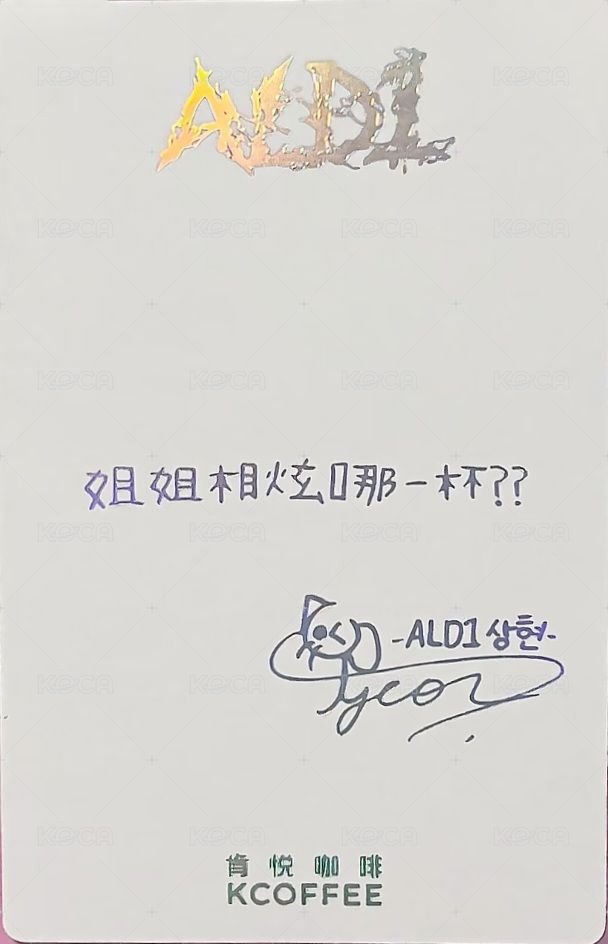 ALD1
姐姐相炫哪一杯??
-ALD1 상현-
肯悦咖啡
KCOFFEE